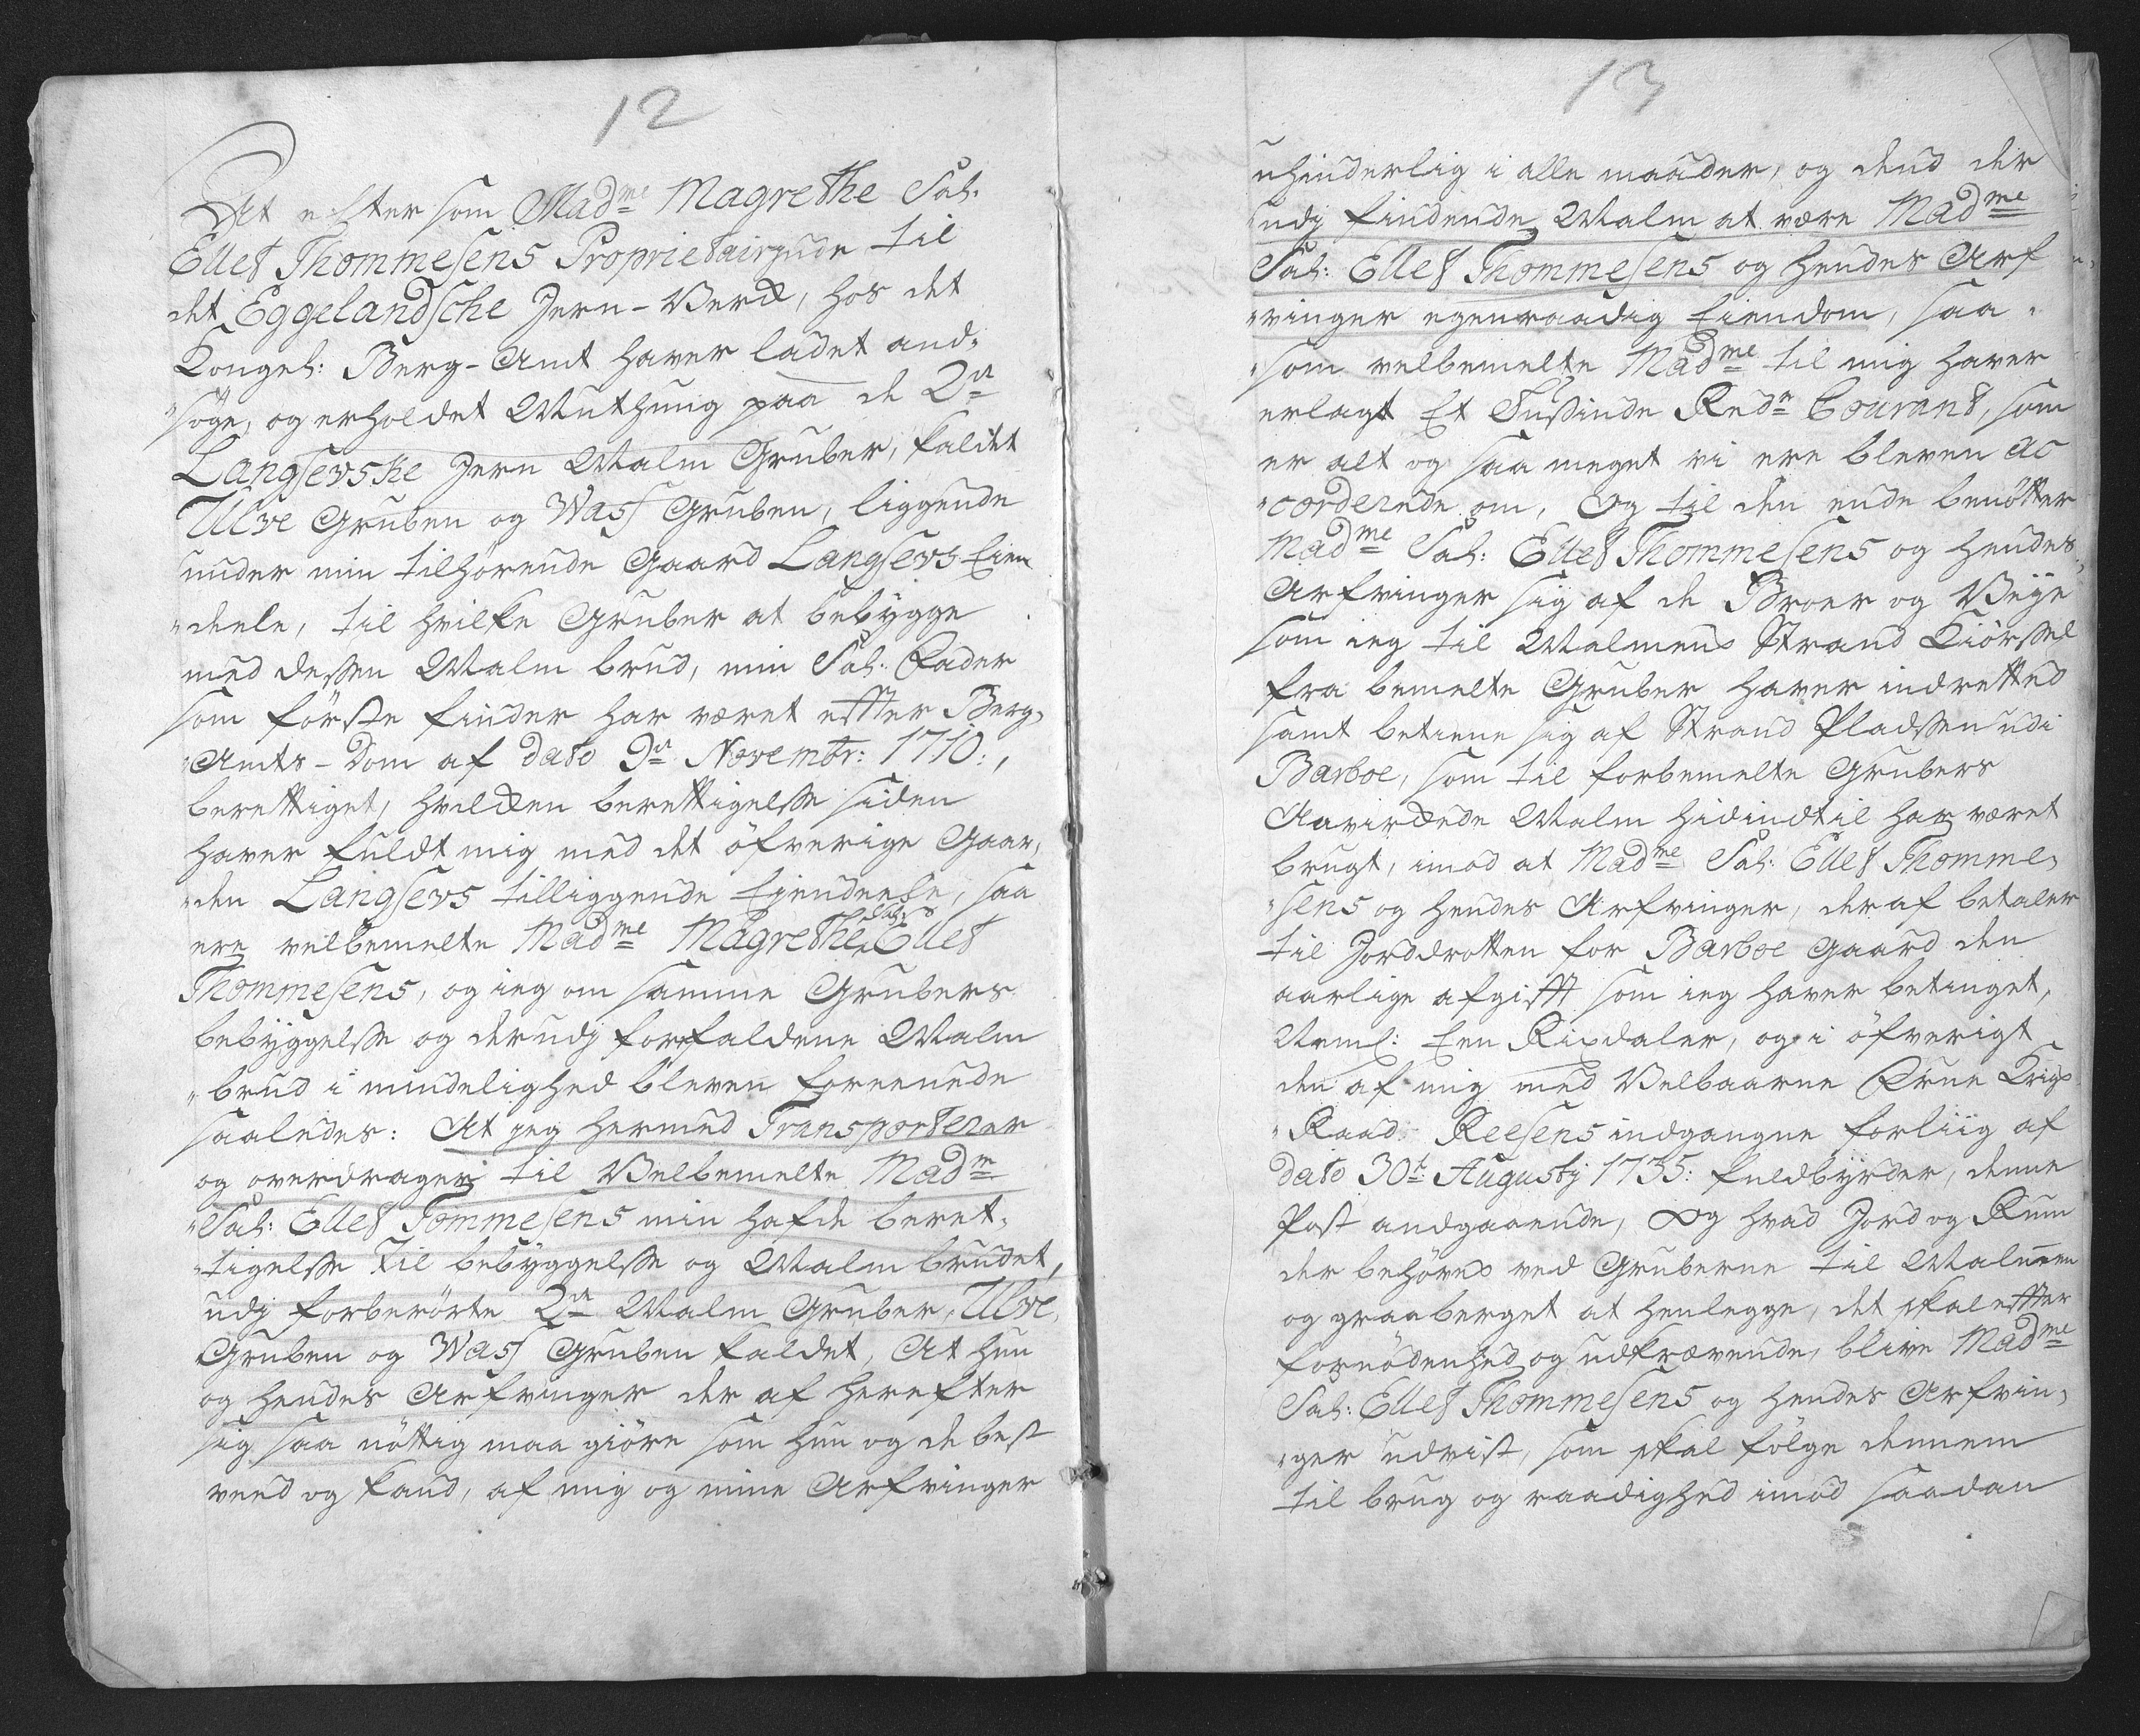 12
At efftersom Madme Magrethe Sal:
Ellef Thommesens Proprietairinde til
det Eggelandsche Jern-Verck, hos det
Kongel: Berg-Amt haver ladet and„
„söge, og erholdet Muthung paa de 2de
Langsevske Jern Malm Gruber, kaldet
Ulve Gruben og Wass Gruben, liggende
under min tilhörende Gaard Langsevs Eien
„deele, til hvilke Gruber at bebygge
med dessen Malm brud, min Sal: Fader
som förste finder har været effter Berg„
„Amts-Dom af dato 9de Novembr: 1710:,
berettiget, hvilcken berettigelsse siden
haver fuldt mig med det öfverige Gaar„
„den Langsevs tilliggende Eiendeele, saa
ere velbemelte Madme Magrethe Sal: Ellef
Thommesens, og ieg om samme Grubers
bebyggelsse og derudj forfaldene Malm
„brud i mindelighed bleven foreenede
saaledes: At jeg hermed Transporterer
og overdrager til Velbemelte Madme
„Sal: Ellef Tommesens min hafde beret„
„tigelsse til bebyggelsse og Malm brudet,
udj forberörte 2de Malm Gruber, Ulve
Gruben og Wass Gruben kaldet, At hun
og hendes Arfvinger der af herefter
sig saa nöttig maa giöre som hun og de best
veed og kand, af mig og mine Arfvinger
13
uhinderlig i alle maader, og dend der
udj findende Malm at være Madme
Sal: Ellef Thommesens og hendes Arf
„vinger egenraadig Eiendom, saa„
„som velbemelte Madme til mig haver
erlagt Et Tusinde Rdr Courant, som
er alt og saa meget vi ere bleven ac
„corderede om, Og til den ende benötter
Madme Sal: Ellef Thommesens og hendes
Arfvinger sig af de Broer og Veye
som ieg til Malmens Strand Kiörssel
fra bemelte Gruber haver indretted
samt betiene sig af Strand Pladssen udi
Barboe, som til forbemelte Grubers
Aavirckede Malm hidindtil har været
brugt, imod at Madme Sal: Ellef Thomme„
„sens og hendes Arfvinger, deraf betaler
til Jorddrotten for Barboe Gaard den
aarlige afgifft som ieg haver betinget,
Neml: Een Rixdaler, og i öfverigt
den af mig med Velbaarne Krigs
„Raad Reesens indgangne forliig af
dato 30te Augustj 1735: fuldbyrder, denne
Post andgaaende, Og hvad Jord og Rum
der behöves ved Gruberne til Malmen
og graaberget at henlegge, det skal effter
fornödenhed og udkrævende, blive Madme
Sal: Ellef Thommesens og hendes Arfvin„
„ger udvist, som skal fölge dennem
til brug og raadighed imod saadan